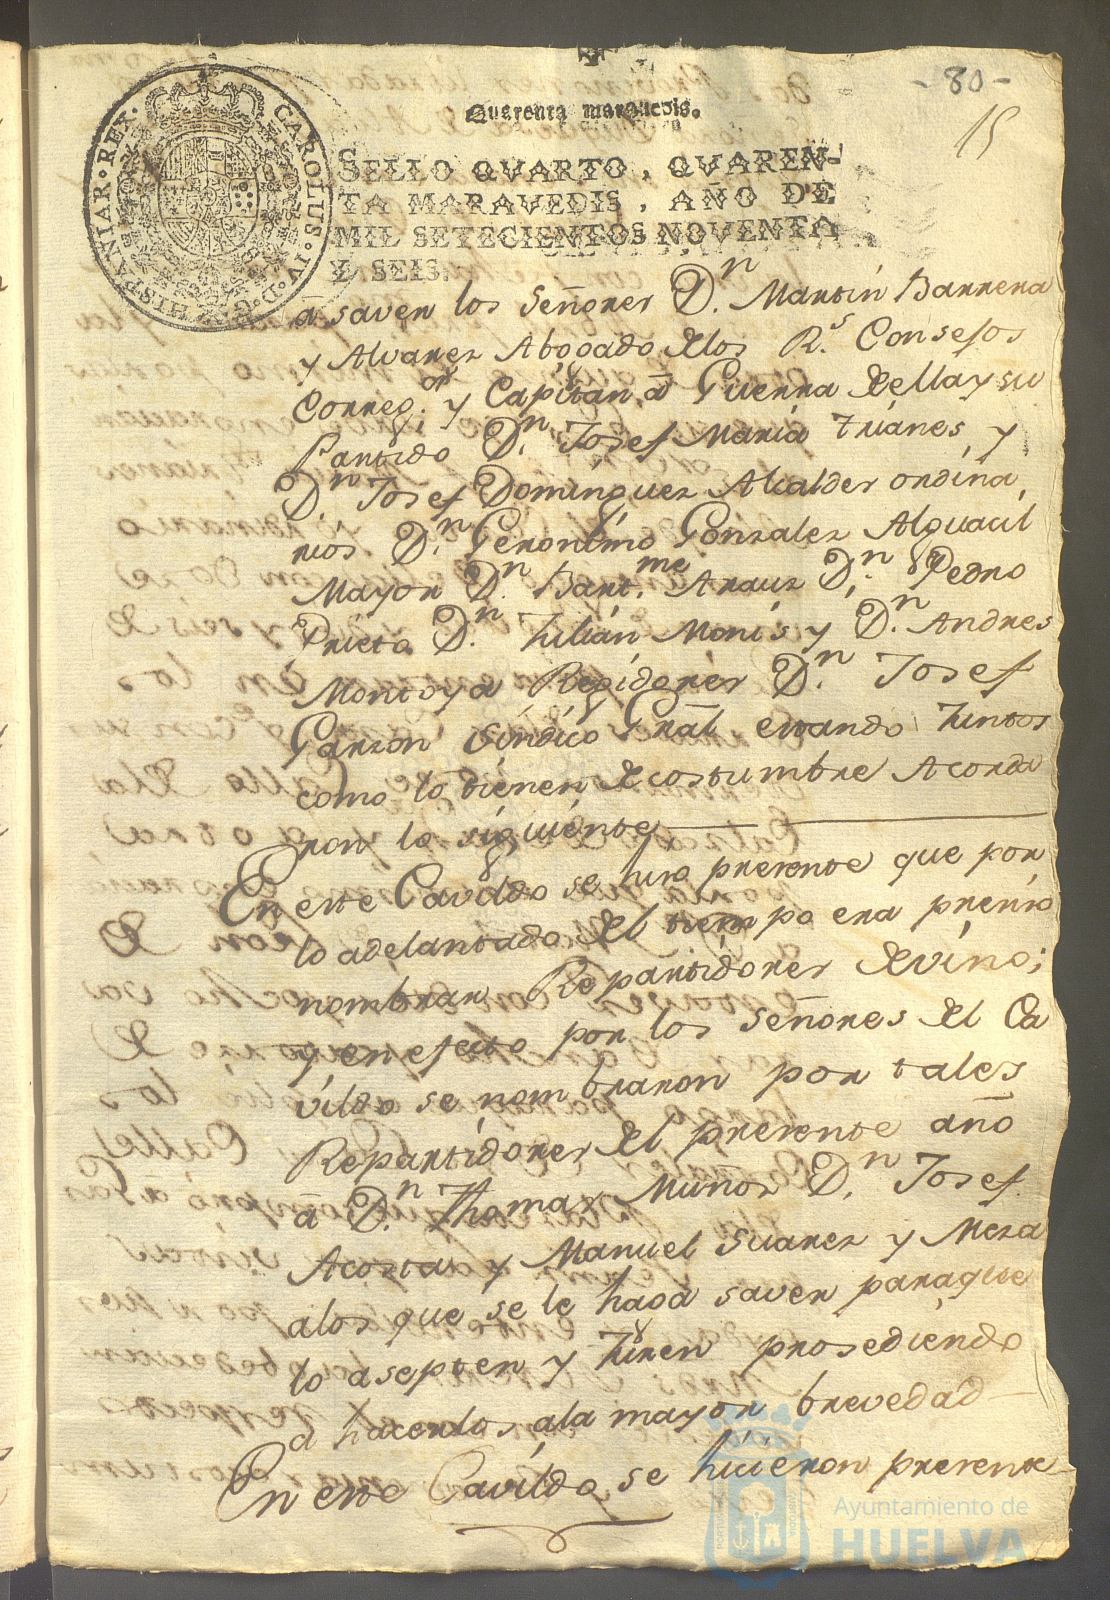 - 80 -
15
Quarenta marauedis.
CAROLUS · IV · D · G · HISPANIAR · REX ·
SELLO QVARTO, QVAREN-
TA MARAVEDIS, AÑO DE
MIL SETECIENTOS NOVENTA
Y SEIS.
a saver los Señores Dn. Martin Barrera
y Alvarez Abogado de los Rs. Consejos
Correg.or y Capitan a Guerra de ella y su
Partido Dn. Josef Maria Trianes y
Dn. Josef Dominguez Alcaldes ordina
rios Dn. Geronimo Gonzalez Alguacil
Mayor Dn. Bart.me Arauz Dn. Pedro
Prieto Dn. Julian Monis y Dn. Andres
Montoya Regidores Dn. Josef
Garzon Sindico Gral estando Juntos
como lo tienen de costumbre Acorda
ron lo siguiente
En este Cavildo se hizo presente que por
lo adelantado del tiempo era presiso
nombrar Repartidores de vino;
y en efecto por los señores del Ca
vildo se nombraron por tales
Repartidores del presente año
a Dn. Thomas Muñoz Dn. Josef
Acosta y Manuel Suarez y Meza
a los que se le haga saver para que
lo asepten y Juren prosediendo
a hacerlos a la mayor brevedad
En este Cavildo se hicieron presente
Ayuntamiento de
HUELVA